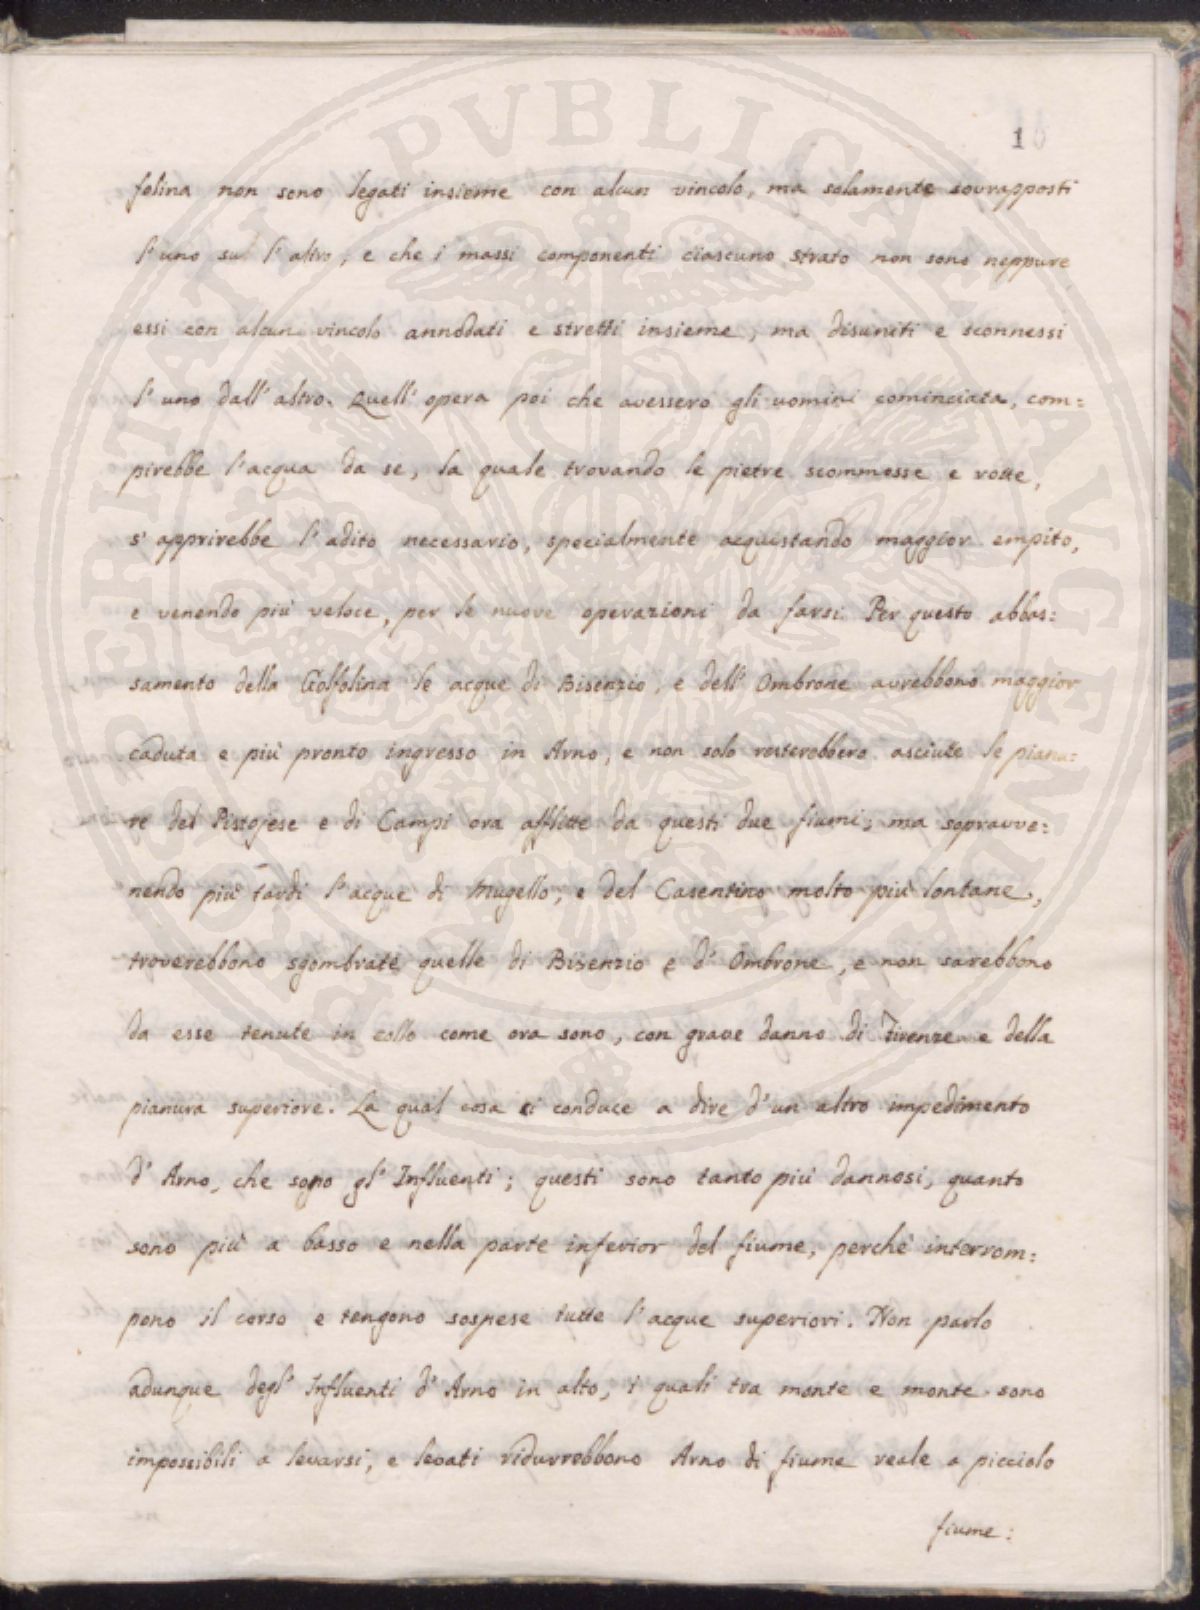 16
folina non sono legati insieme con alcun vincolo, ma solamente sovrapposti
l'uno sul l'altro, e che i massi componenti ciascuno strato non sono neppure
essi con alcun vincolo annodati e stretti insieme, ma disuniti e sconnessi
l'uno dall'altro. Quell'opera poi che avessero gli uomini cominciata, com=
pirebbe l'acqua da se, la quale trovando le pietre scommosse e rotte,
s'apprirebbe l'adito necessario, specialmente acquistando maggior empito,
e venendo più veloce, per le nuove operazioni da farsi. Per questo abbas=
samento della Golfolina le acque di Bisenzio, e dell'Ombrone avrebbono maggior
caduta e più pronto ingresso in Arno, e non solo resterebbero asciute le pianu=
re del Pistojese e di Campi ora afflitte da questi due fiumi; ma sopravve=
nendo più tardi l'acque di Mugello, e del Casentino molto più lontane,
troverebbono sgombrate quelle di Bisenzio e d'Ombrone, e non sarebbono
da esse tenute in collo come ora sono, con grave danno di Firenze e della
pianura superiore. La qual cosa ci conduce a dire d'un altro impedimento
d'Arno, che sono gl'Influenti; questi sono tanto più dannosi, quanto
sono più a basso e nella parte inferior del fiume, perchè interrom=
pono il corso e tengono sospese tutte l'acque superiori. Non parlo
adunque degl'Influenti d'Arno in alto, i quali tra monte e monte sono
impossibili a levarsi, e levati ridurrebbono Arno di fiume reale a picciolo
fiume:
PVBLICAE